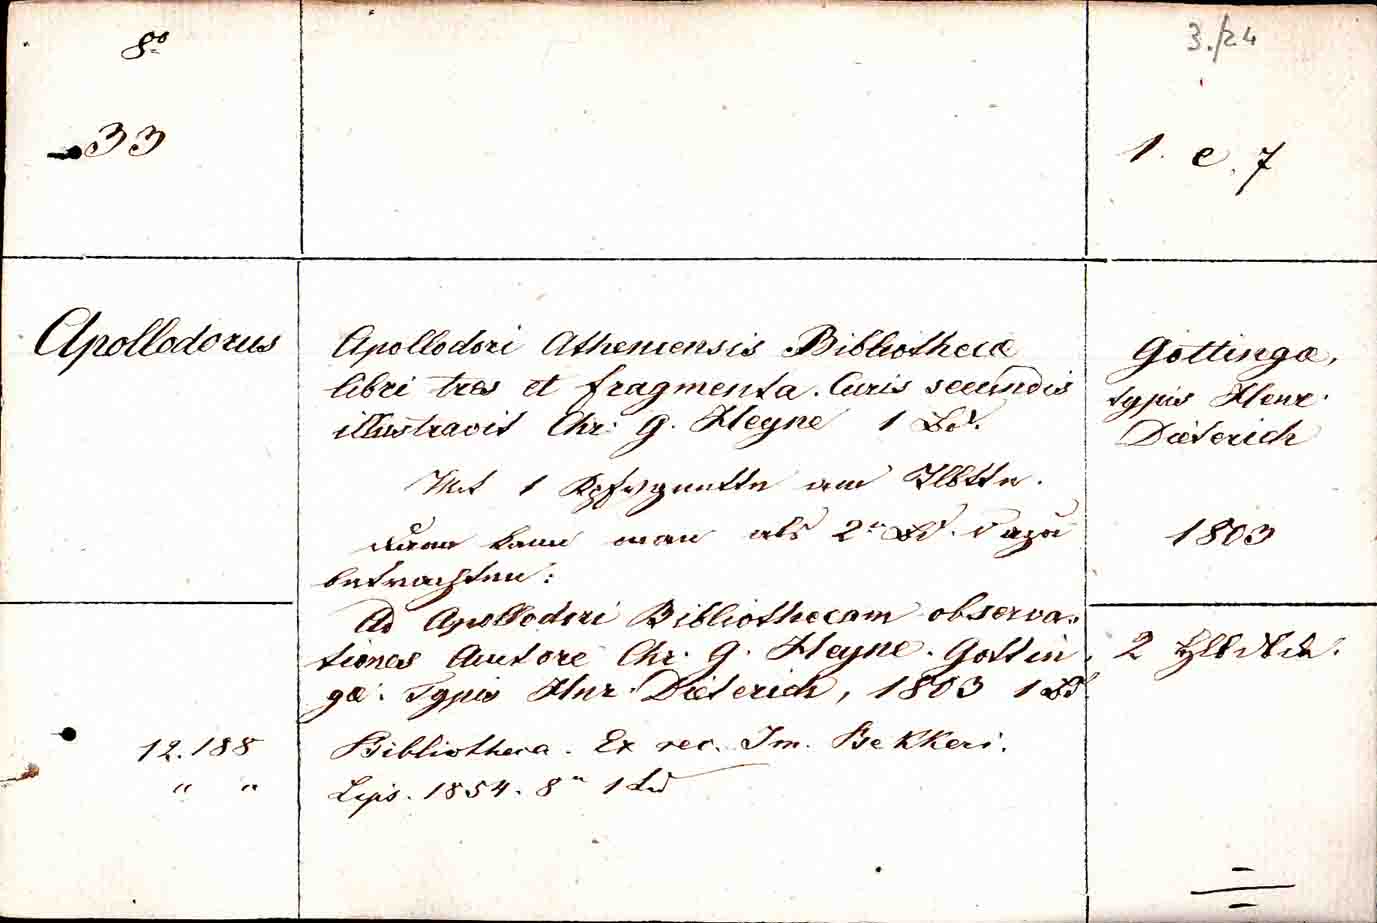 8º
3./24
33
1. e. 7
Apollodorus
Apollodori Atheniensis Bibliothecæ
libri tres et fragmenta. Curis secundis
illustravit Chr. G. Heyne 1 Bd.
Mit 1 Kpfvignette am Tlbtte.
kann man als 2n Bd. dazu
betrachten:
Ad Apollodori Bibliothecam observa-
tiones Autore Chr. G. Heyne. Gottin
gæ. Typis Henr. Dieterich, 1803 1 Bd
Gottingæ,
typis Henr.
Dieterich
1803
2 Hlbfrzbde.
12.188
Bibliotheca. Ex rec. Im. Bekkeri.
" "
Lips. 1854. 8º 1 Bd